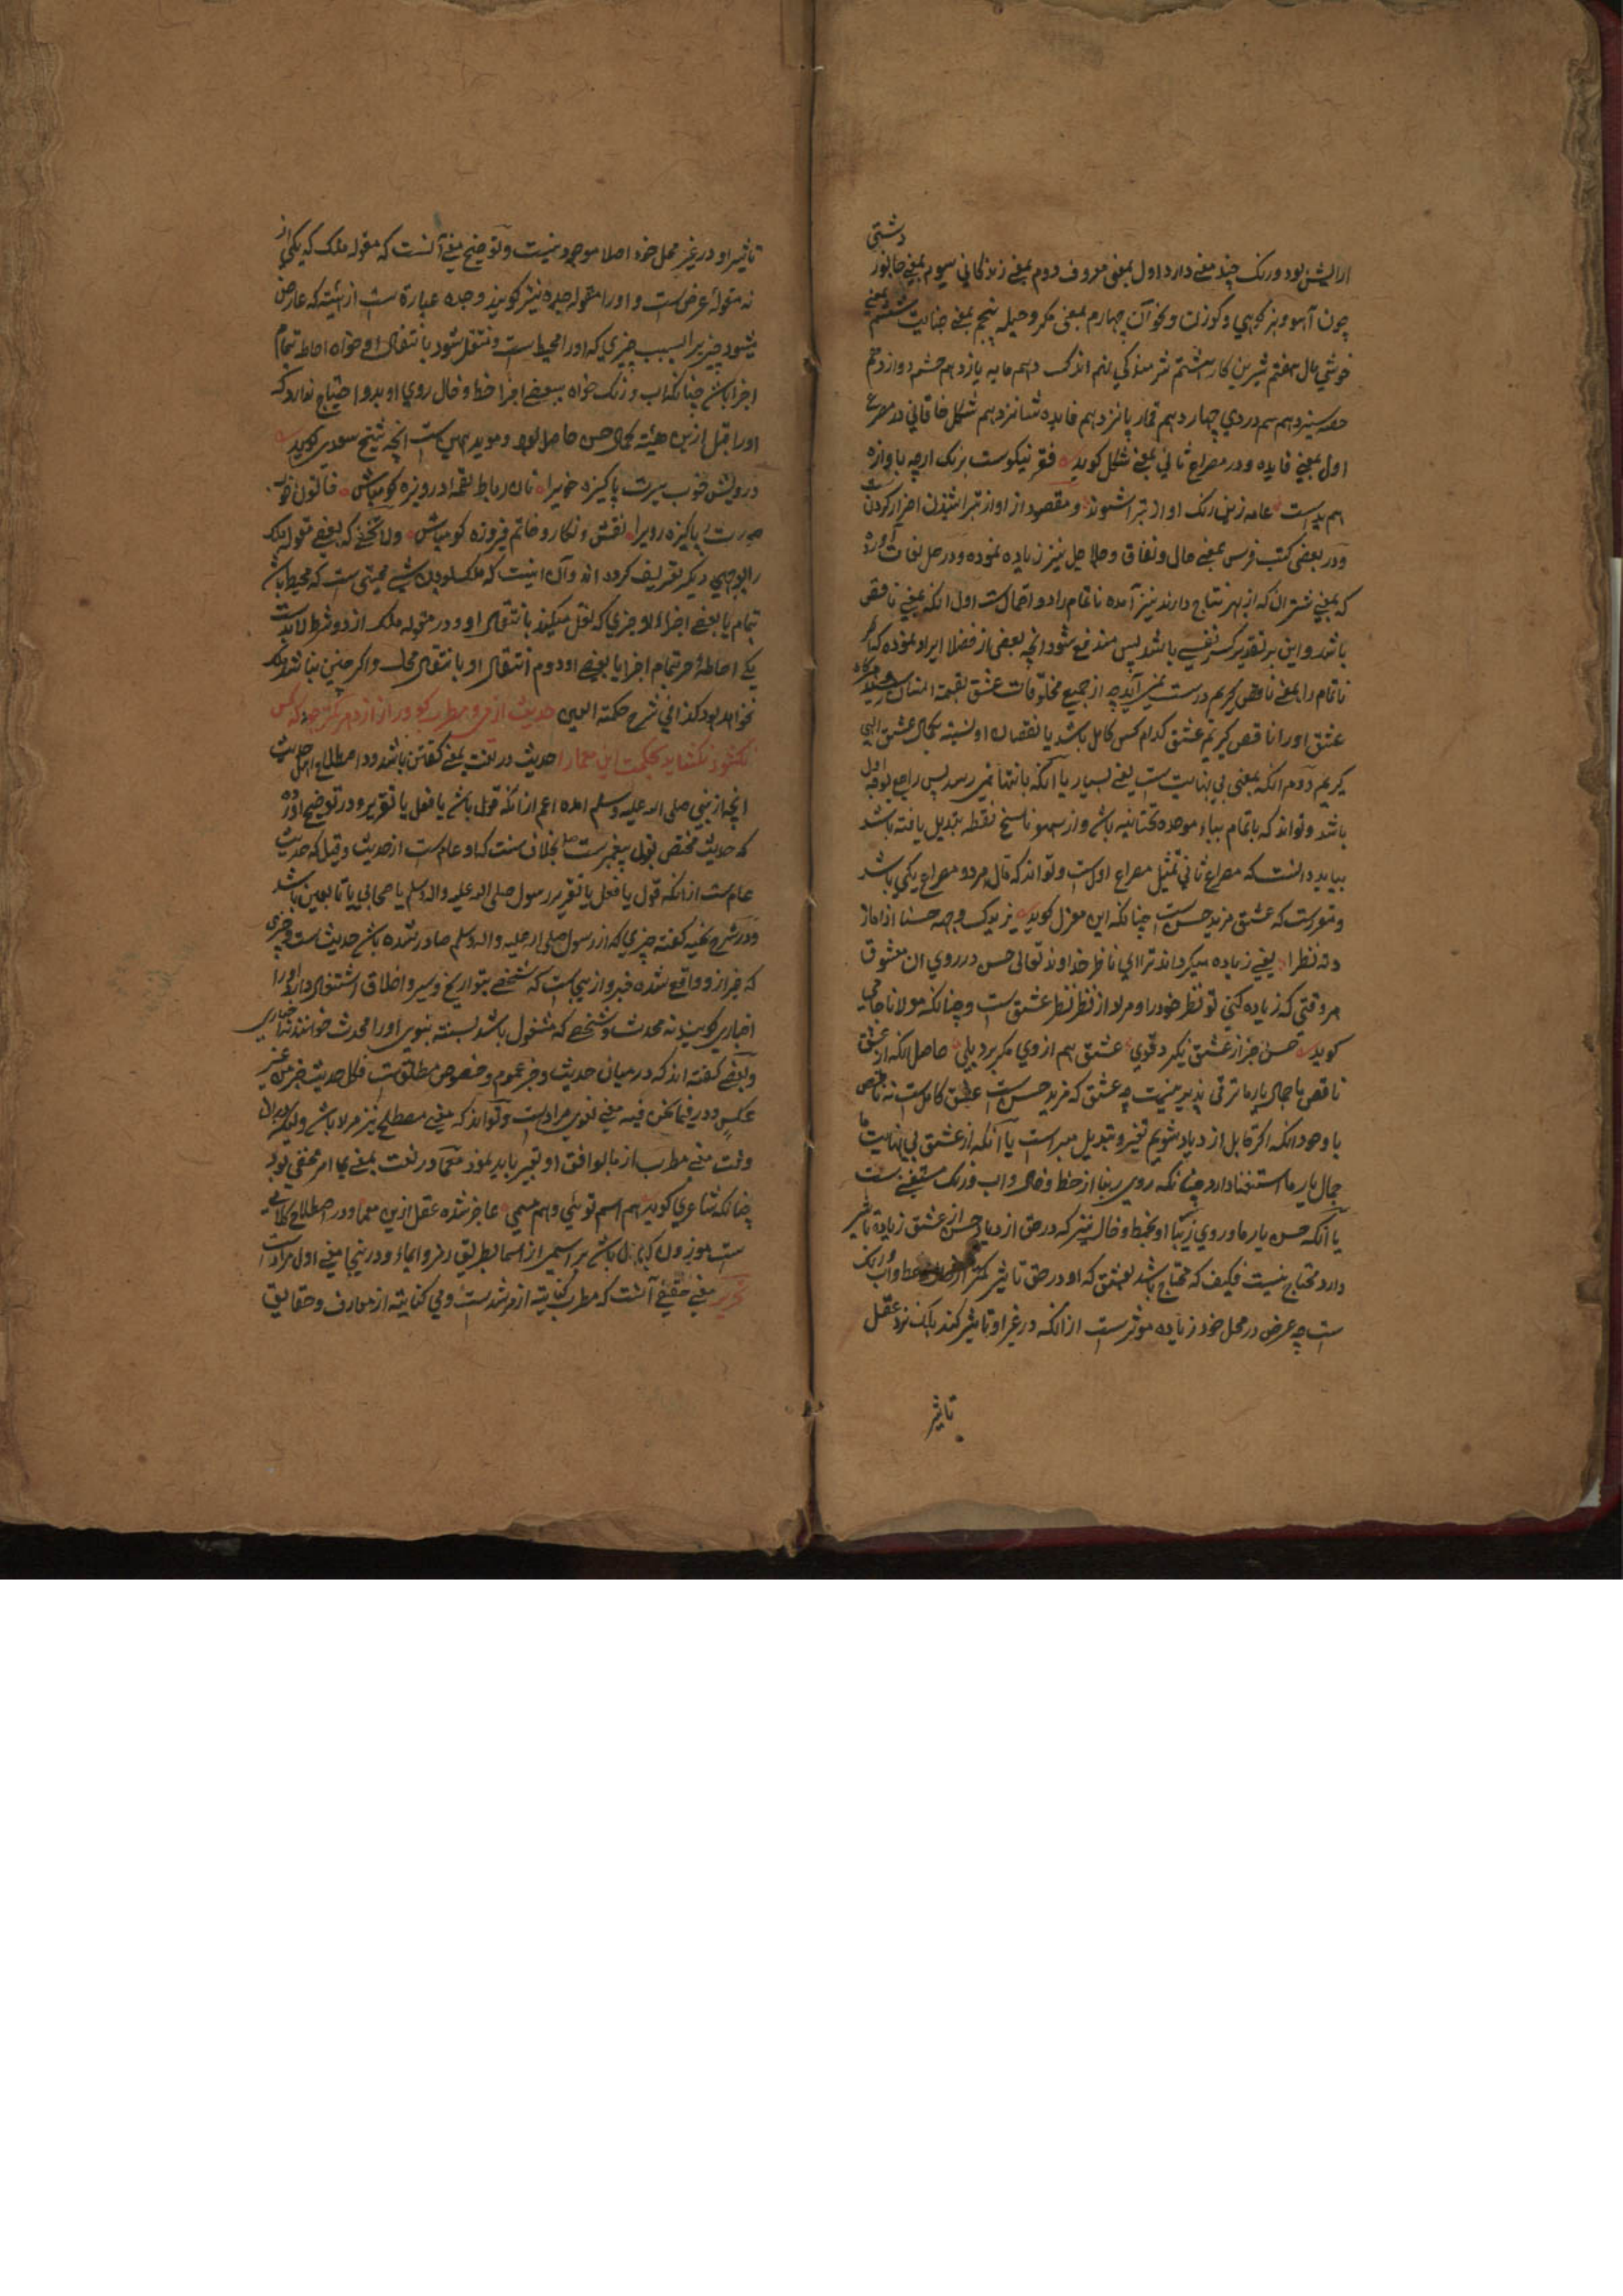 ارایش بود و رنک چند معنی دارد اول بمعنی معروف دوم بمعنی زندکانی سیوم بمعنی جانور دشتی
چون آهو و بز کوهی و کوزن و نحو آن چهارم بمعنی مکر و حیله پنجم بمعنی خیانت ششم بمعنی
خوشی مال هفتم شرین کار هشتم شرمندکی نهم اندک دهم مایه یازدهم چشم دوازدهم
حصه سیزدهم سم دردی چهاردهم قمار پانزدهم فایده شانزدهم شکل خاقانی در مصرع
اول بمعنی فایده و در مصراع ثانی بمعنی شکل کوید فقر نیکوست برنک ارچه باوازه
هم بدست عامه زین رنک آواز تبرا شنوند و مقصود از آواز تبرا شنیدن احراز کردن است
و در بعضی کتب فرس بمعنی حال و نفاق و حاصل نیز زیاده نموده و در حل لغات آورده
که بمعنی شتران که از بهر نتاج دارند نیز آمده ناتمام را دو احتمالست اول انکه بمعنی ناقص
باشد و این بر تقدیر کسر نفسی باشد پس مندفع شود انچه بعضی از فضلا ایراد نموده که اکر
ناتمام را بمعنی ناقص کیریم درست نمی آید چه از جمیع مخلوقات عشق
عشق او را ناقص کیریم عشق کدام کس کامل باشد یا نقصان او نسبته بکمال عشق الهی
کیریم دوم انکه بمعنی بی نهایت ست یعنی بسیار یا آنکه بانتها نمی رسد پس راجع بوجه اول
باشد و تواند که باتمام بباء موحده تحتانیه باشد و از سهو ناسخ نقطه تبدیل یافته باشد
بباید دانست که مصراع ثانی تمثیل مصراع اولست و تواند که مآل هر دو مصراع یکی باشد
و مقررست که عشق مزید حسن ست چنانکه این معزل کوید یزیدک وجهه حسنا اذا ما ز
دته نظرا یعنی زیاده میکرداند ترا ای ناظر خداوند تعالی حسن در روی ان معشوق
هر وقتی که زیاده کنی تو نظر خود را و مراد از نظر نظر عشق ست و چنانکه مولانا جامی
کوید حسن جز از عشق نکیرد قوی عشق هم از وی مکر برد پلی حاصل انکه از عشق
ناقص ما جمال یار ما ترقی پذیر نیست چه عشق که مزید حسن ست عشق کامل ست نه ناقص
با وجود انکه اکر قابل ازدیاد شویم تغیر و تبدیل مبراست یا آنکه از عشق بی نهایت ما
جمال یار ما استغنا دارد چنانکه روی زیبا از خط و خال و اب و رنک مستغنی ست
یا آنکه حسن یار ما و روی زیبا او بخط و خال نیز که در حق ازدیاد حسن از عشق زیاده تاثیر
دارد محتاج نیست فکیف که محتاج باشد بعشق که او در حق تاثیر کمتر از خط و آب و رنک
ست چه عرض در محل خود زیاده موثرست از انکه در غیر او تاثیر کند بلک نزد عقل
تاثیر
تاثیر او در غیر محل خود اصلا موجود نیست و توضیح معنی آنست که مقوله ملک که یکی از
نه مقوله عرض ست و او را مقوله جده نیز کویند و جده عبارة ست از هیئته که عارض
میشود چیزیرا بسبب چیزی که او را محیط است و منتقل شود بانتقال او خواه احاطه تمام
اجزا باشد چنانکه اب و رنک خواه ببعضی اجزا خط و خال روی او بدو احتیاج ندارد که
او را قبل ازین هیئته کمال حسن حاصل بود و موید همین ست انچه شیخ سعدی کوید
درویش خوب سیرت پاکیزه خویرا نان رباط لقمه دریوزه کو مباش خاتون خوب
صورت پاکیزه رویرا نقش و نکار و خاتم فیروزه کو مباش ولا یخفی که بعضی مقوله ملک
را بوجهی دیکر تعریف کرده اند و آن اینست که ملک بودن شی محیطی ست که محیط باشد
تمام یا بعضی اجزاء او چیزی که نقل میکند بانتقال او و در مقوله ملک از دو شرط لابدست
یکی احاطه هر تمام اجزا یا بعضی او دوم انتقال او بانتقال محاط و اکر چنین نباشد ملک
نخواهد بود کذا فی شرح حکمة العین حدیث از مطرب و می کو و راز از دهر کمتر جو که کس
نکشود و نکشاید بحکمت این معما را حدیث در لغت بمعنی کفتن باشد و در اصطلاح اهل حدیث
انچه از نبی صلی الله علیه و سلم امده اعم از انکه قول باشد یا فعل یا تقریر و در توضیح آورده
که حدیث مختص بقول پیغمبرست صلعم بخلاف سنت که او عام ست از حدیث و قیل که حدیث
عام ست از انکه قول یا فعل یا تقریر رسول صلی الله علیه و اله و سلم یا صحابی یا تابعین باشد
و در شرح نخبه کفته چیزی که از رسول صلی الله علیه و اله و سلم صادر شده باشد حدیث ست و چیزی
که جز از و واقع شده خبر و از نیجاست که شخصی بتواریخ و سیر و اخلاق اشتغال دارد او را
اخباری کویند نه محدث و شخصی که مشغول باشد بسنته نبوی او را محدث خوانند نه اخباری
و بعضی کفته اند که در میان حدیث و خبر عموم و خصوص مطلق ست فکل حدیث خبر من غیر
عکس و در فیما نحن فیه معنی لغوی مرادست و تواند که معنی مصطلح نیز مراد باشد
وقت معنی مطرب از ما یوافق او تعبیر باید نمود معما در لغت بمعنی جا امر مخفی بود
چنانکه شاعری کوید هم اسم توئی و هم مسمی عاجز شده عقل ازین معما و در اصطلاح کلامی
ست موزون که دال باشد بر اسمی از اسما بطریق رمز و ایماء و در نیجا معنی اول مرادست
تحریر معنی حقیقی آنست که مطرب کنایته از مرشدست و می کنایته از معارف و حقایق